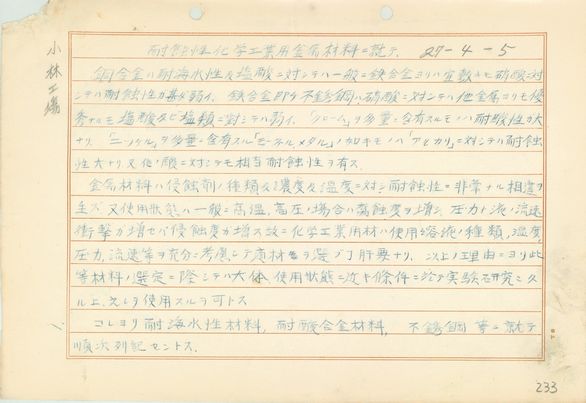 小林工場
耐蝕性化学工業用金属材料ニ就テ. 27-4-5
銅合金ハ耐海水性及塩酸ニ対シテハ一般ニ鉄合金ヨリハ宜敷キモ硝酸ニ対
シテハ耐蝕性ガ甚ダ弱イ. 鉄合金即チ不銹鋼ハ硝酸ニ対シテハ他金属ヨリモ優
秀ナルモ塩酸及ビ塩類ニ対シテハ弱イ.「クローム」ヲ多量ニ含有スルモノハ耐酸性ガ大
ナリ.「ニッケル」ヲ多量ニ含有スル「モーネルメタル」ノ如キモノハ「アルカリ」ニ対シテハ耐蝕
性大ナリ又他ノ酸ニ対シテモ相当耐蝕性ヲ有ス.
金属材料ハ侵蝕剤ノ種類及濃度及温度ニ対シ耐蝕性ニ非常ナル相違ヲ
生ズ又使用状態ハ一般ニ高温,高圧ノ場合ハ腐蝕度ヲ増シ.圧力,液ノ流速
衝撃ガ増セバ侵蝕度ガ増ス故ニ化学工業用材ハ使用スル溶液ノ種類,温度,
圧力,流速等ヲ充分ニ考慮シテ適材ヲ選ブ事肝要ナリ. 以上ノ理由ニヨリ此
等材料ノ選定ニ際シテハ大体,使用状態ニ近キ条件ニ於テ実験研究シタ
ル上,之レヲ使用スルヲ可トス
コレヨリ耐海水性材料,耐酸合金材料, 不銹鋼 等ニ就テ
順次列記セントス.
233